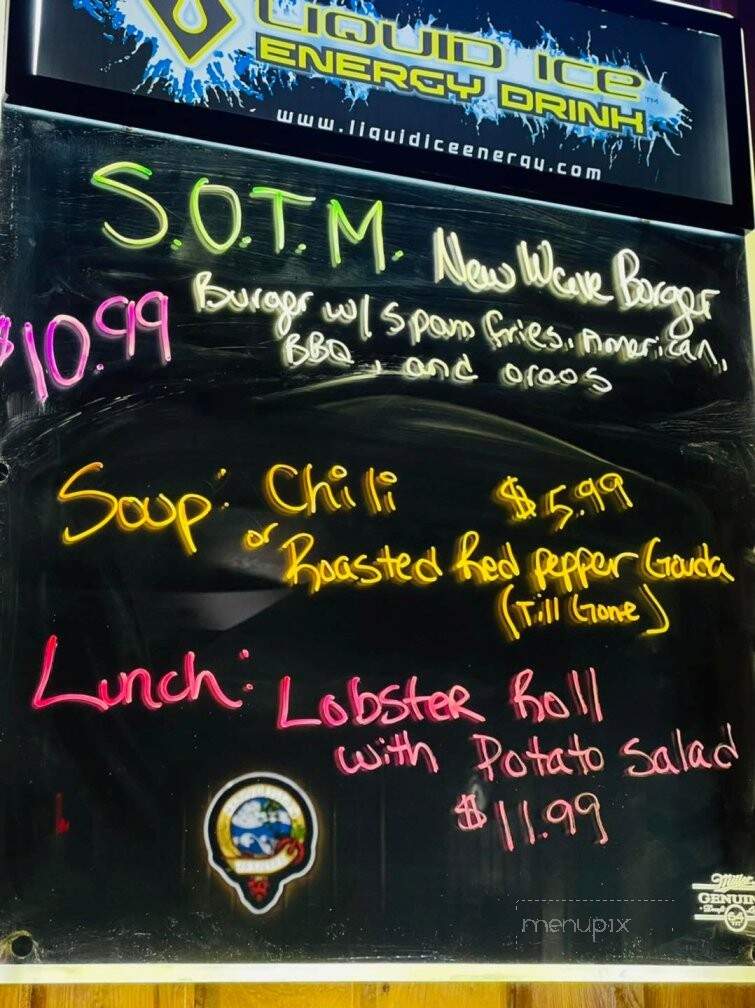 LIQUID ICE
ENERGY DRINK™
www.liquidiceenergy.com
S.O.T.M. New Wave Burger
$10.99
Burger w/ spam fries, American,
BBQ, and oreos
Soup: Chili $5.99
or Roasted Red pepper Gouda
(Till Gone)
Lunch: Lobster Roll
with Potato Salad
$11.99
menupix
Miller
GENUINE
64